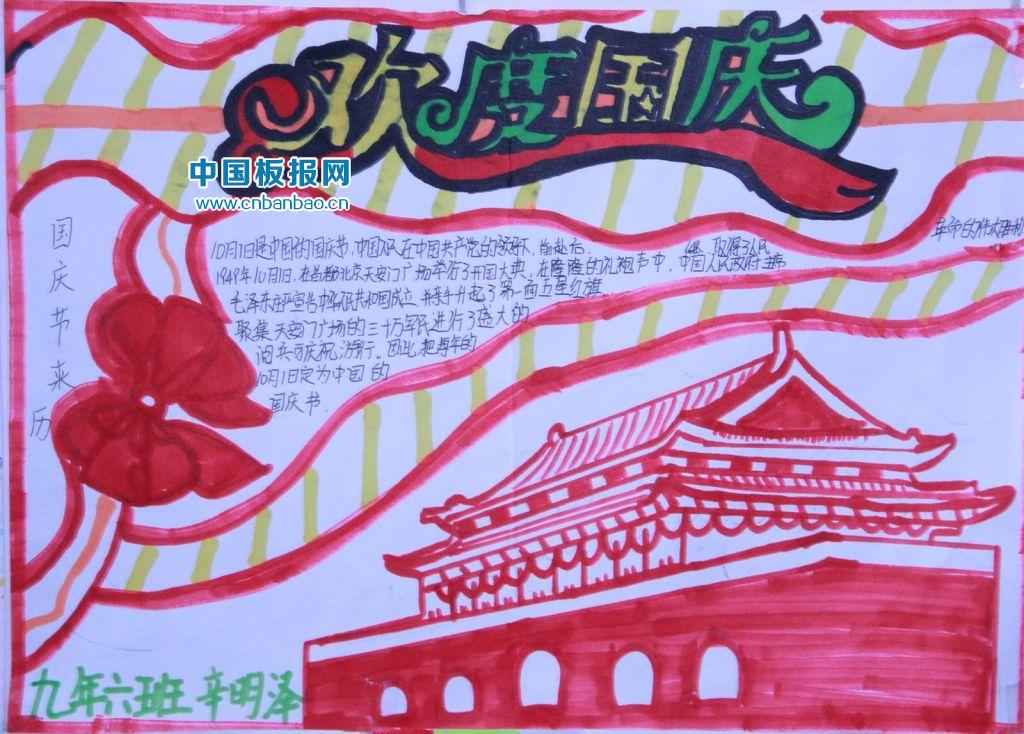 欢度国庆
中国板报网
www.cnbanbao.cn
国庆节来历
10月1日是中国的国庆节,中国人民在中国共产党的领导下,前赴后 取得了人民革命的伟大胜利
1949年10月1日,在首都北京天安门广场举行了开国大典,在隆隆的礼炮声中,中国人民政府主席
毛泽东庄严宣告中华人民共和国成立,并亲手升起了第一面五星红旗
聚集天安门广场的三十万军民进行了盛大的
阅兵和庆祝游行。因此把每年的
10月1日定为中国的
国庆节.
九年六班 辛明泽